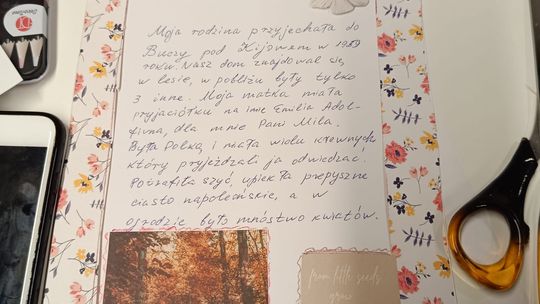 Moja rodzina przyjechała do
Buczy pod Kijowem w 1989
roku. Nasz dom znajdował się
w lesie, w pobliżu były tylko
3 inne. Moja matka miała
przyjaciółkę na imię Emilia Adol-
fivna, dla mnie Pani Mila.
Była Polką i miała wielu krewnych
który przyjeżdżali ją odwiedzać.
Potrafiła szyć, upiekła przepyszne
ciasto napoleońskie, a w
ogrodzie było mnóstwo kwiatów.
from little seeds
grow